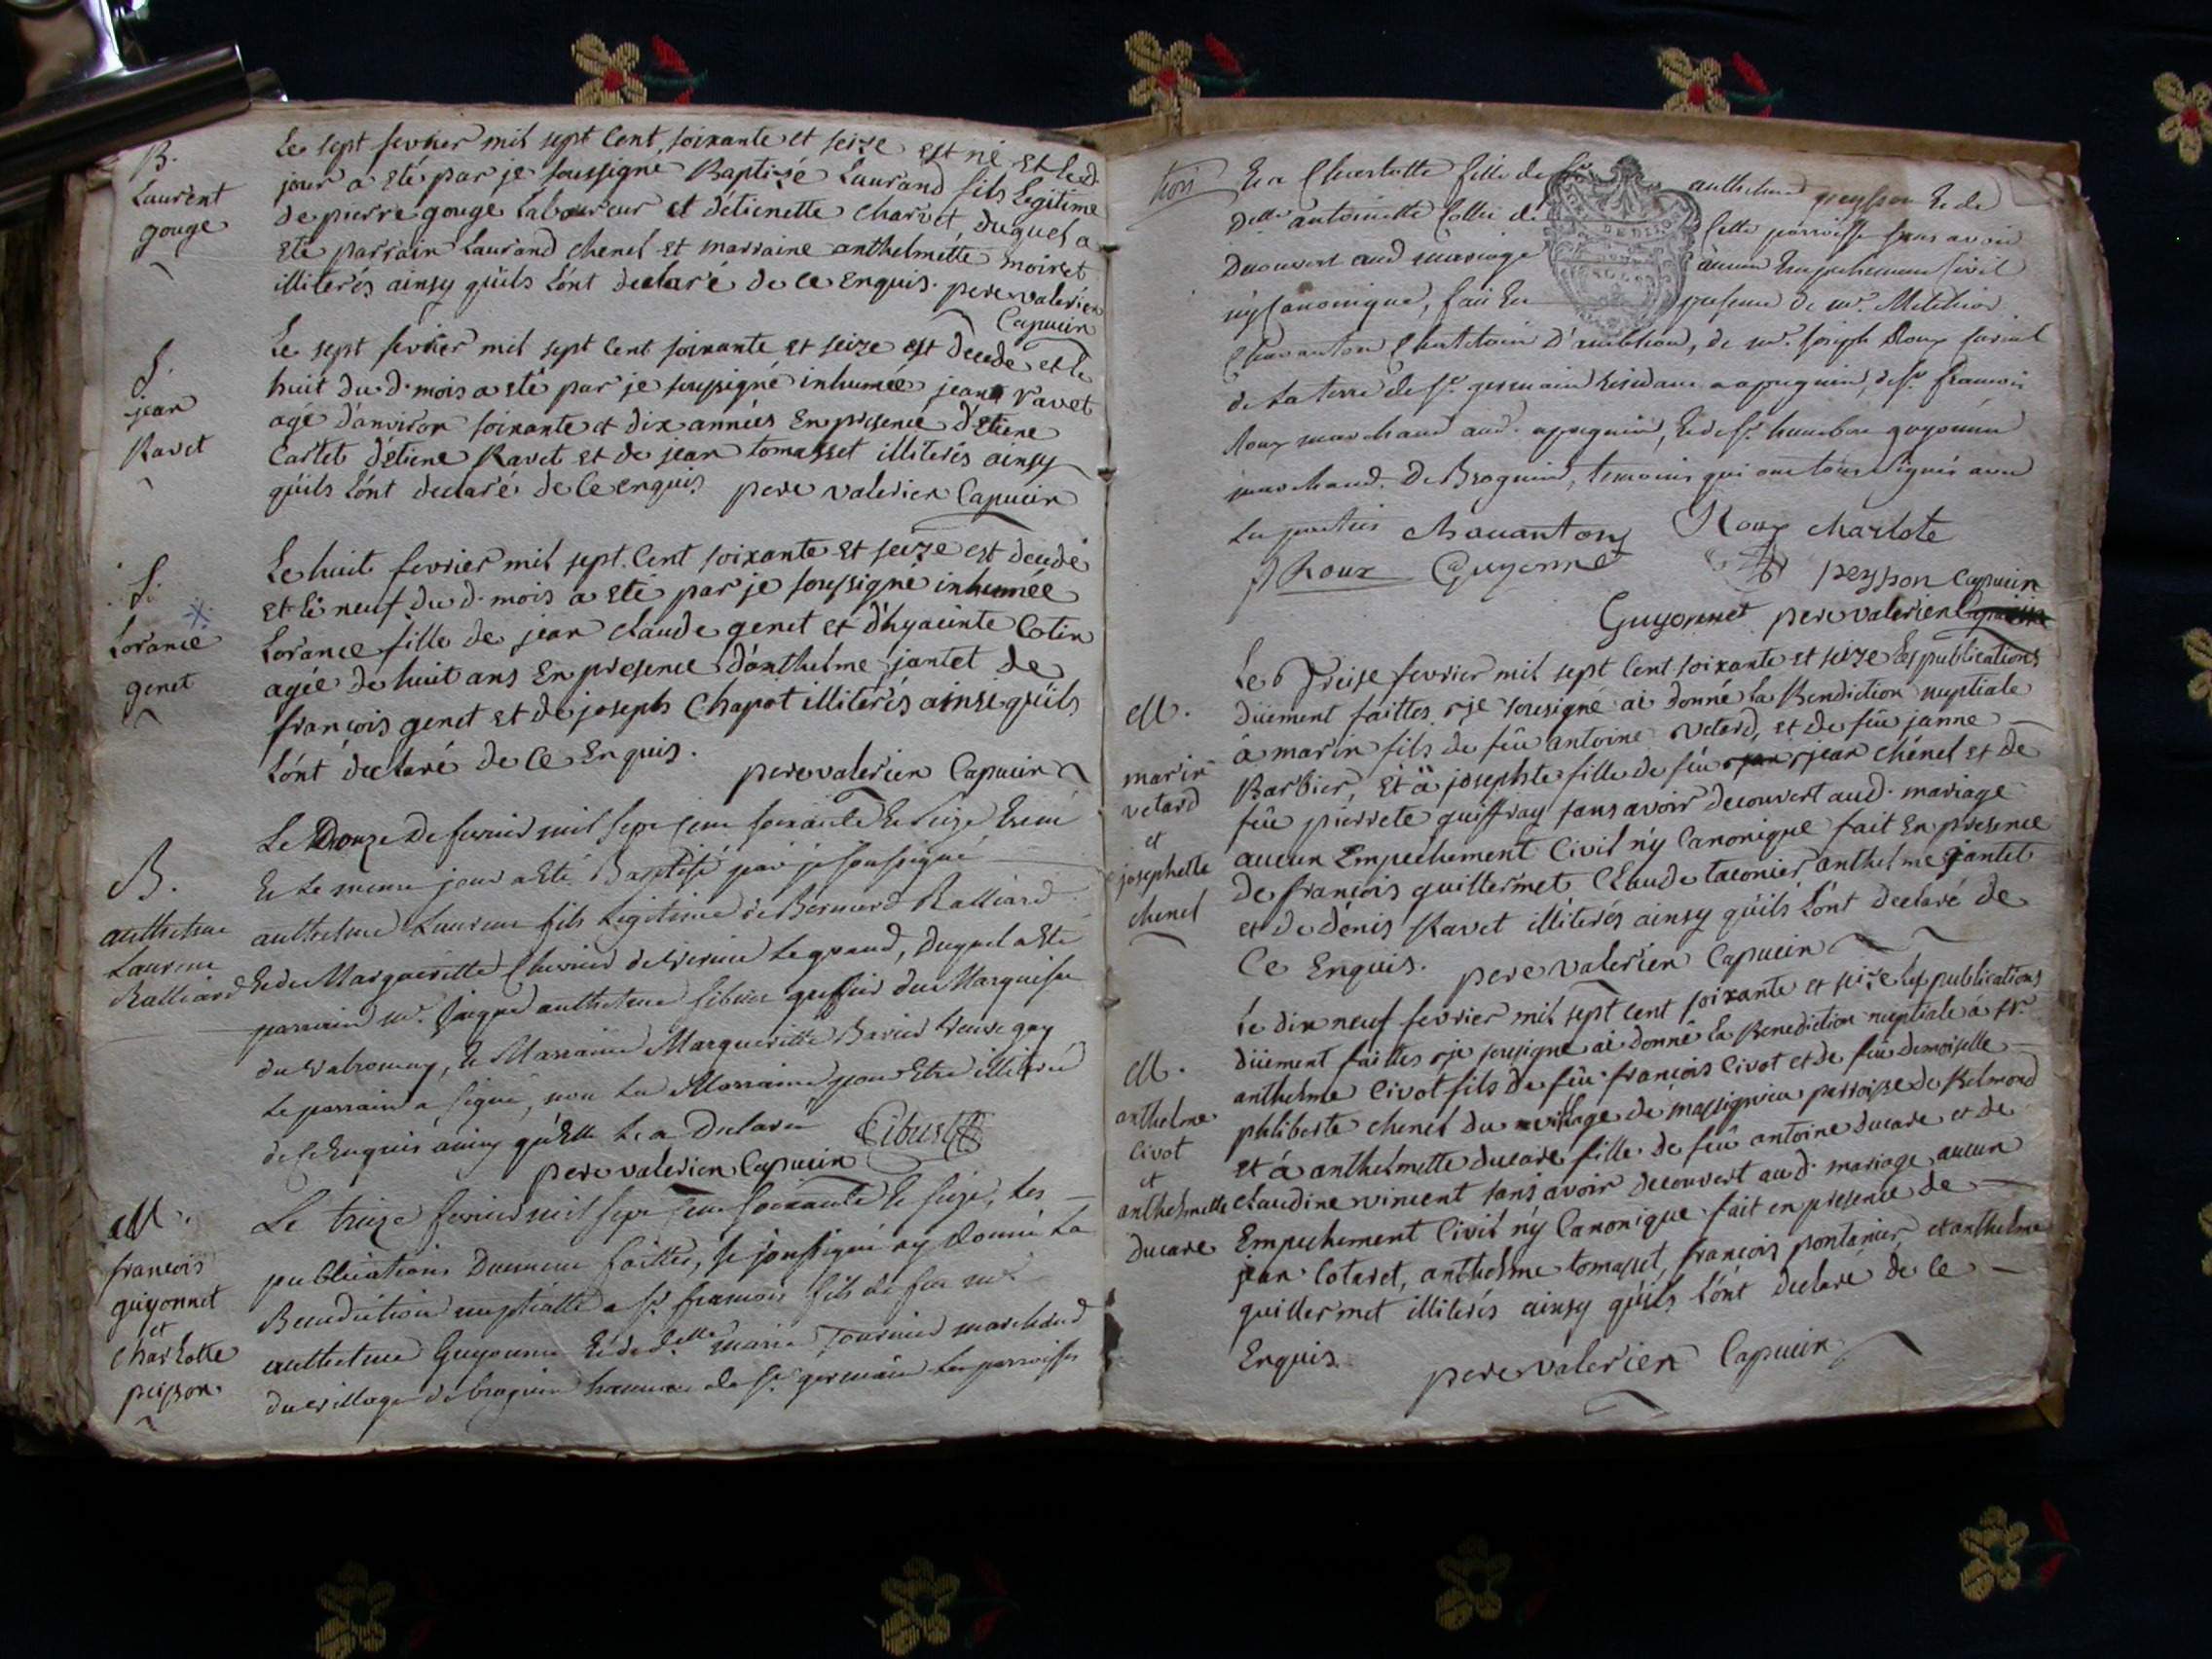 B.
Laurent
gouge
Le sept fevrier mil sept Cent soixante et seize est né et led.
jour a eté par je soussigné Baptizé Laurand fils Legitime
de pierre gouge Laboureur et détienette charvet, duquel a
eté parrain Laurand chenel et marraine anthelmette moiret
illiterés ainsy quils Lónt declaré de Ce enquis. pere valerien
Capucin
S.
jean
Ravet
Le sept fevrier mil sept Cent soixante et seize est decedé et le
huit du d. mois a eté par je soussigné inhumée jean ravet
agé d'anviron soixante et dix années En presence d'Etiene
Cartet d'étiene Ravet et de jean tomasset illiterés ainsy
quils Lónt declaré de Ce enquis pere valerien Capucin
S.
Lorance
genet
Le huit fevrier mil sept Cent soixante et seize est decedé
et le neuf du d. mois a eté par je soussigné inhumée
Lorance fille de jean claude genet et d'hyacinte Cotin
agée de huit ans En presence d'anthelme jantet de
françois genet et de joseph Chapot illiterés ainse quils
Lónt declaré de Ce Enquis.
pere valerien Capucin
B.
anthelme
Laurent
Ralliard
Le Douze De fevrier mil sept Cent soixante Et seize Est né
Et Le meme jour a Eté Baptisé par je soussigné
anthelme Laurent fils Legitime de Bernard Ralliard
Et de Margueritte Chevrier de virieu Legrand, Duquel a Eté
parrain mr. jacque anthelme greffier du Marquisat
du valromey, Et Marraine Marguerite veuve gay
Le parrain a signé, non La Marraine pour Etre illiterée
de Ce Enquis ainsy qu'Elle Le a Declaré
pere valerien Capucin
M.
françois
guyonnet
et
charlotte
peisson
Le treize fevrier mil sept Cent soixante Et seize, Les
publications Duement faittes, je soussigné ay Donné La
Benediction nuptialle a sr. francois fils de feu mr.
anthelme Guyonnet Et de delle marie marchand
du village de brognin hameau de st. germain Les parroisses
trois
Et a Charlotte fille de sr. anthelme peysson Et de
Delle antoinette Collet de Cette parroisse sans avoir
Decouvert aud mariage aucun Empechement Civil
ny Canonique, fait En presence de mr. Melchior
Chavanton Chatelain D'ambleon, de mr. joseph Roux
de La terre de st. germain residant a apregnin, de sr. francois
Roux marchand aud. apregnin, Et de sr. humbert guyonnet
marchand De Brognin, temoins qui ont tous signés avec
Les parties Chavanton Roux charlote
J Roux Guyonnet peysson Capucin
Guyonnet pere valerien
M.
marin
vetard
et
josephette
chenel
Le Treise fevrier mil sept Cent soixante et seize Les publications
düement faittes je sousigné ai donné La Benediction nuptiale
á marin fils de feu antoine vetard, et de feu janne
Barbier, Et á josephte fille de feu jean chénel et de
feu pierrete guiffray sans avoir decouvert aud. mariage
aucun Empechement Civil n'y Canonique fait En presence
de françois guillermet Claude taconier anthelme jantet
et de dénis Ravet illiterés ainsy quils Lónt declaré de
Ce Enquis. pere valerien Capucin
M.
anthelme
Civot
et
anthelmette
ducare
Le dix neuf fevrier mil sept cent soixante et seize Les publications
düement faittes je sousigné ai donné La Benediction nuptiale á sr.
anthelme Civot fils de feu françois Civot et de feu demoiselle
philiberte chenel du village de massignieu parroisse de Belmond
et á anthelmette ducare fille de feu antoine ducare et de
claudine vincent sans avoir decouvert au d. mariage aucun
Empechement Civil n'y Canonique fait en presence de
jean Cotaret, anthelme tomasset, françois pontanier, et anthelme
guillermet illiterés ainsy quils Lónt declaré de Ce
Enquis. pere valerien Capucin